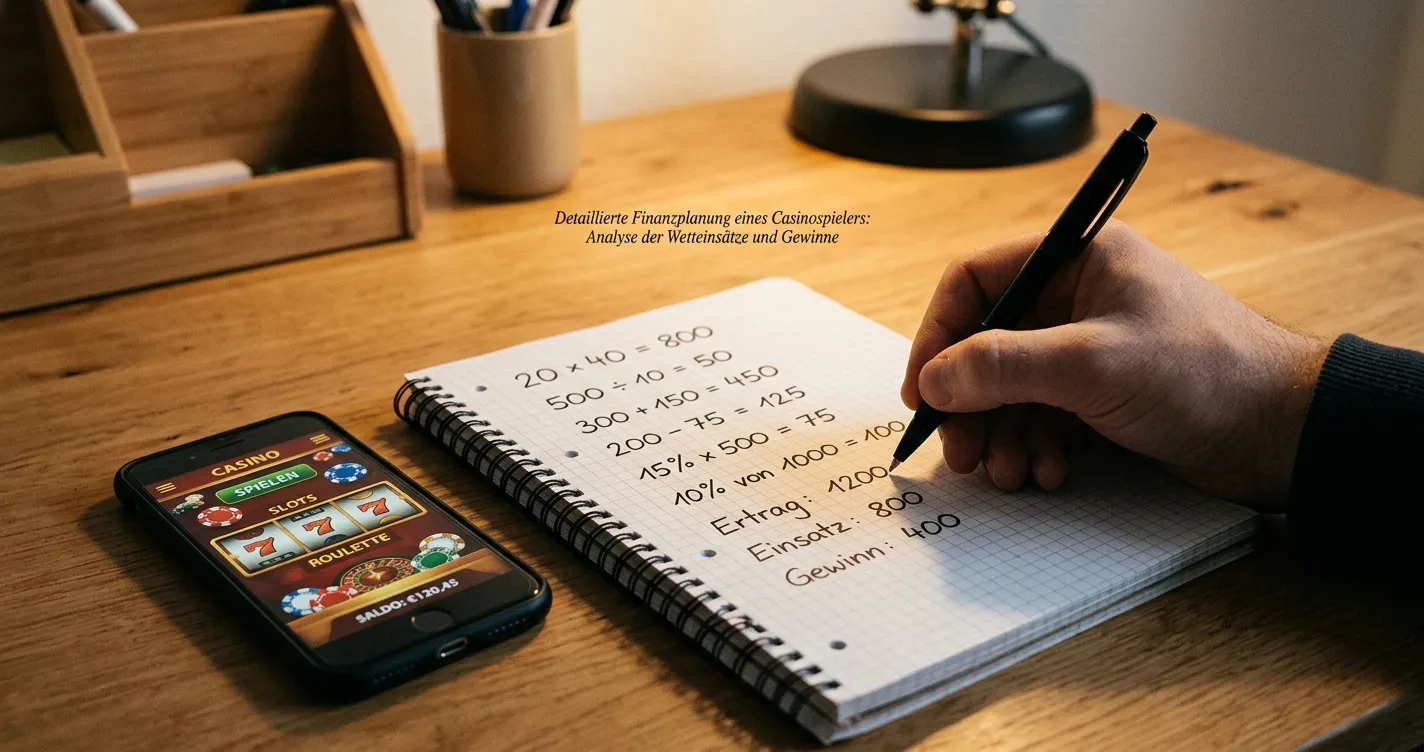 Detaillierte Finanzplanung eines Casinospielers:
Analyse der Wetteinsätze und Gewinne
20 × 40 = 800
500 ÷ 10 = 50
300 + 150 = 450
200 – 75 = 125
15% × 500 = 75
10% von 1000 = 100
Ertrag: 1200
Einsatz: 800
Gewinn: 400
CASINO
SPIELEN
SLOTS
7 7 7
ROULETTE
SALDO: €120,45